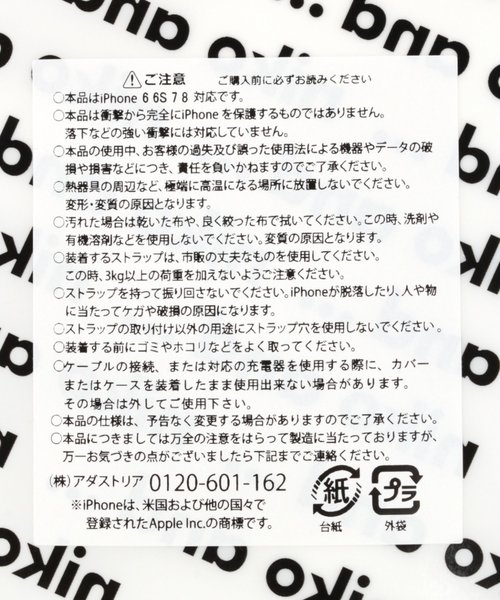 ご注意 ご購入前に必ずお読みください
○本品はiPhone 6 6S 7 8 対応です。
○本品は衝撃から完全にiPhoneを保護するものではありません。
落下などの強い衝撃には対応していません。
○本品の使用中、お客様の過失及び誤った使用法による機器やデータの破
損や損害などにつき、責任を負いかねますのでご了承ください。
○熱器具の周辺など、極端に高温になる場所に放置しないでください。
変形・変質の原因となります。
○汚れた場合は乾いた布や、良く絞った布で拭いてください。この時、洗剤や
有機溶剤などを使用しないでください。変質の原因となります。
○装着するストラップは、市販の丈夫なものを使用してください。
この時、3kg以上の荷重を加えないようご注意ください。
○ストラップを持って振り回さないでください。iPhoneが脱落したり、人や物
に当たってケガや破損の原因になります。
○ストラップの取り付け以外の用途にストラップ穴を使用しないでください。
○装着する前にゴミやホコリなどをよく取ってください。
○ケーブルの接続、または対応の充電器を使用する際に、カバー
またはケースを装着したまま使用出来ない場合があります。
その場合は外してご使用下さい。
○本品の仕様は、予告なく変更する場合がありますのでご了承ください。
○本品につきましては万全の注意をはらって製造に当たっておりますが、
万一お気づきの点がございましたら下記までご連絡ください。
(株) アダストリア 0120-601-162
※iPhoneは、米国および他の国々で
登録されたApple Inc.の商標です。
紙
台紙
プラ
外袋
niko and ...